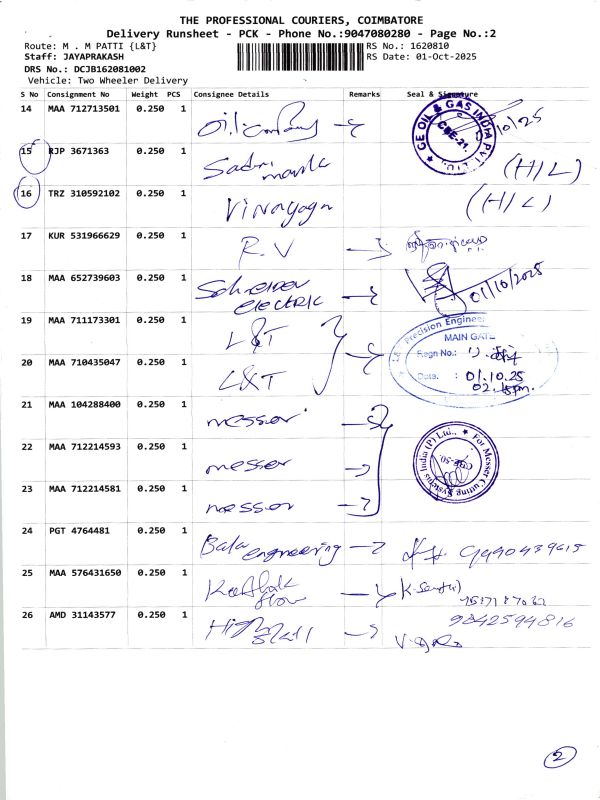 THE PROFESSIONAL COURIERS, COIMBATORE
Delivery Runsheet - PCK - Phone No.:9047080280 - Page No.:2
Route: M . M PATTI {L&T}
RS No.: 1620810
Staff: JAYAPRAKASH
RS Date: 01-Oct-2025
DRS No.: DCJB162081002
Vehicle: Two Wheeler Delivery
S No Consignment No Weight PCS Consignee Details Remarks Seal & Signature
14 MAA 712713501 0.250 1
GE OIL & GAS INDIA PVT LTD
CBE-21.
10/25
15 RJP 3671363 0.250 1 (H/L)
16 TRZ 310592102 0.250 1 Vinayaga (H/L)
17 KUR 531966629 0.250 1 R.V
18 MAA 652739603 0.250 1 electric 01/10/2025
19 MAA 711173301 0.250 1 L&T
Precision Enginee
MAIN GATE
Regn No.:
Date. : 01.10.25
20 MAA 710435047 0.250 1 L&T
21 MAA 104288400 0.250 1 messer
22 MAA 712214593 0.250 1 messer
For Messer Cutting Systems India (P) Ltd.,
23 MAA 712214581 0.250 1 messer
24 PGT 4764481 0.250 1 Bala engineering
25 MAA 576431650 0.250 1 flow
26 AMD 31143577 0.250 1 9842594816
2